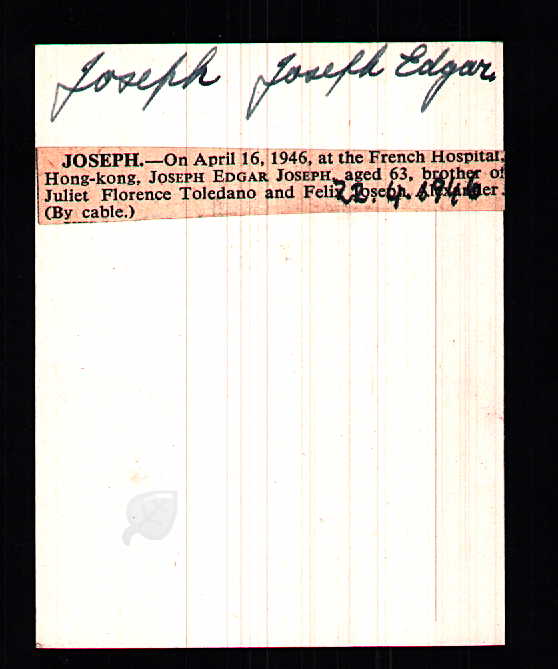 Joseph Joseph Edgar.
JOSEPH.—On April 16, 1946, at the French Hospital,
Hong-kong, JOSEPH EDGAR JOSEPH, aged 63, brother of
Juliet Florence Toledano and Felix Joseph Alexander
22.4.1946
(By cable.)